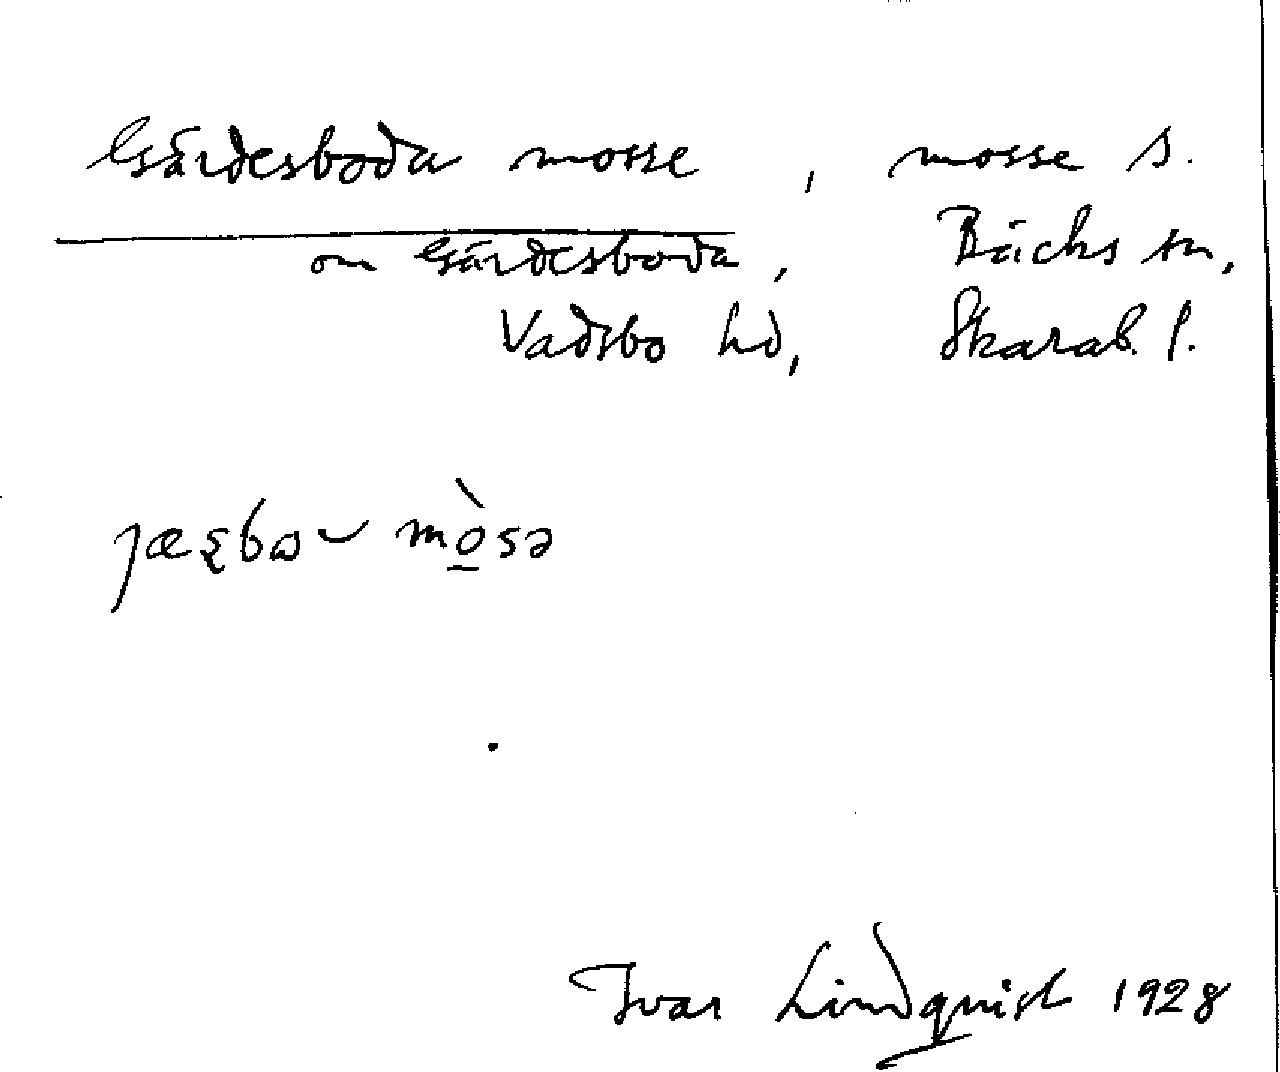 Gärdesboda mosse, mosse s.
om Gärdesboda, Bäcks sn,
Vadsbo hd, Skarab. l.
jæsbω mò̱sə
Ivar Lindquist 1928